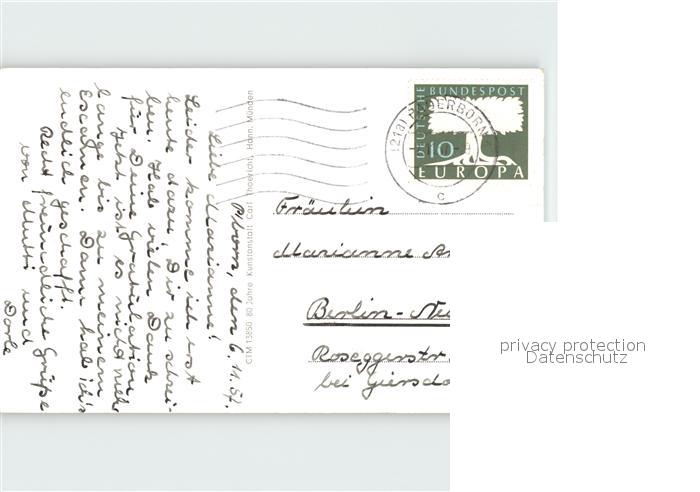 P'born, den 6.11.57.
Liebe Marianne!
Leider komme ich erst
heute dazu, Dir zu schrei-
ben. Hab vielen Dank
für Deine Gratulation.
Jetzt ist es nicht mehr
lange bis zu meinem
Examen. Dann hab ich's
endlich geschafft.
Recht freundliche Grüße
von Mutti und
Dorle
CTM 13850 80 Jahre Kunstanstalt Carl Thoericht, Hann. Münden
DEUTSCHE BUNDESPOST
10
EUROPA
(21a) PADERBORN
c
Fräulein
Marianne
Berlin-
Roseggerstr.
bei
privacy protection
Datenschutz